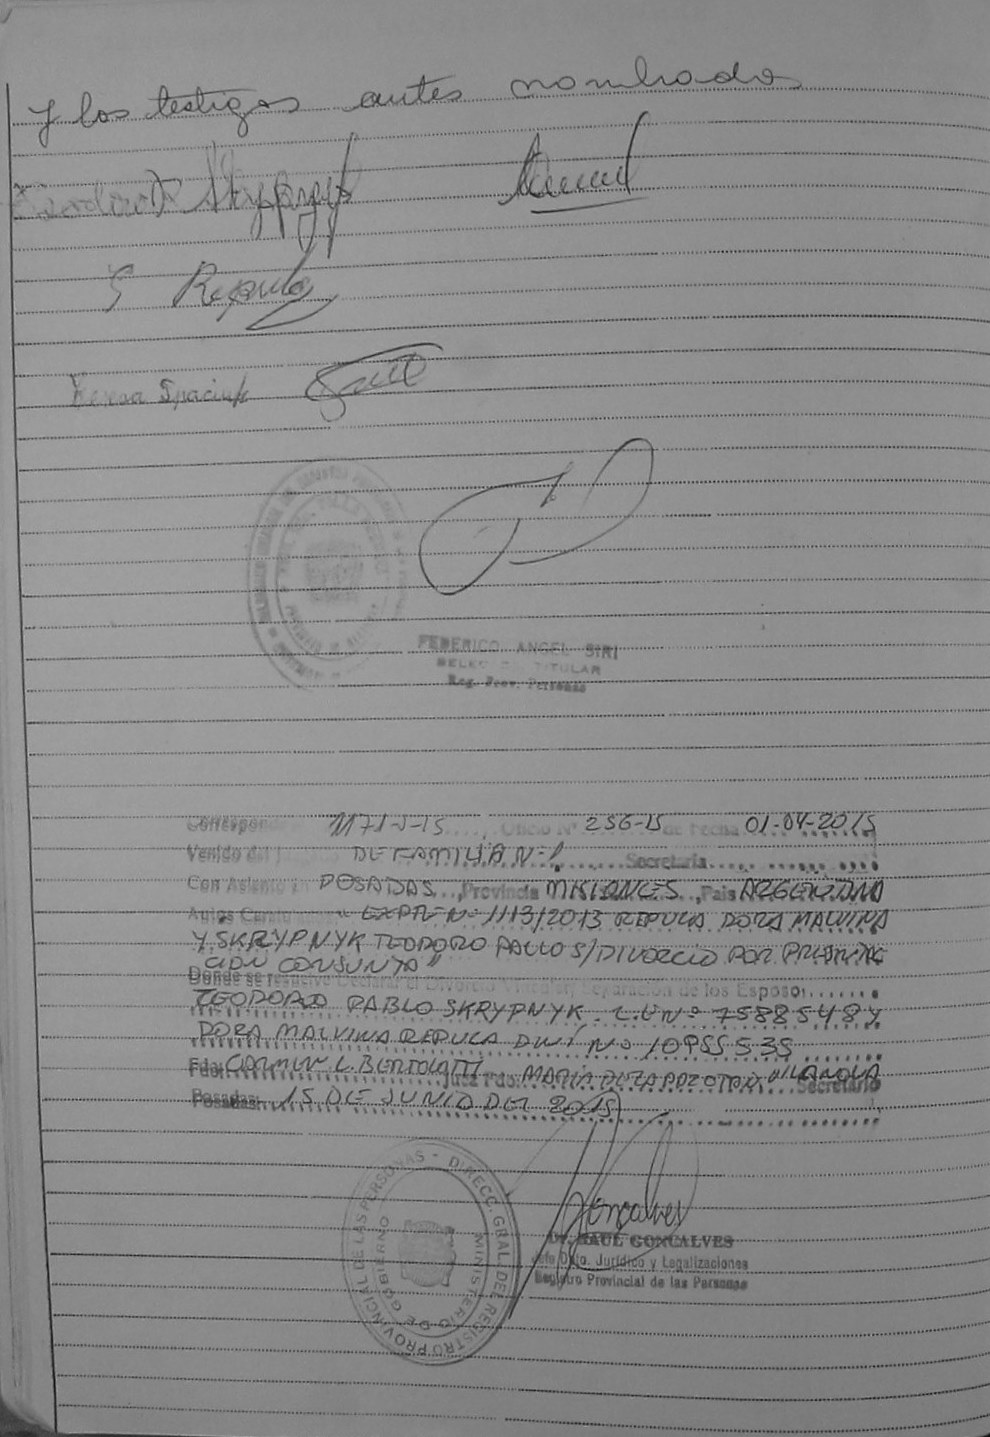 y los testigos antes nombrados
Skrypnyk
Repula
Teresa Spaciuk
FEDERICO ANGEL SIRI
TITULAR
Reg. Prov. Personas
Corresponde 1171-J-15 Oficio Nº 256-15 de Fecha 01-04-2015
Venido del DE FAMILIA N-1 Secretaría
Con Asiento en POSADAS, Provincia MISIONES, País ARGENTINA
Autos Caratulados "EXPTE Nº 1113/2013 REPULA DORA MALVINA
Y SKRYPNYK TEODORO PABLO S/DIVORCIO POR PRESENTA
CION CONJUNTA"
Donde se resuelve Declarar el Divorcio Vincular, Separación de los Esposos
TEODORO PABLO SKRYPNYK L.E Nº 7588548 y
DORA MALVINA REPULA DNI Nº 10955535
Fdo: L. BERTOLOTTI Juez Fdo: MARIA VILANOVA Secretario
Posadas: 15 DE JUNIO DEL 2015
REGISTRO PROVINCIAL DE LAS PERSONAS - DIRECC. GRAL. DEL
MINISTERIO DE GOBIERNO
Goncalves
Dr. RAUL GONCALVES
Jefe Dpto. Jurídico y Legalizaciones
Registro Provincial de las Personas